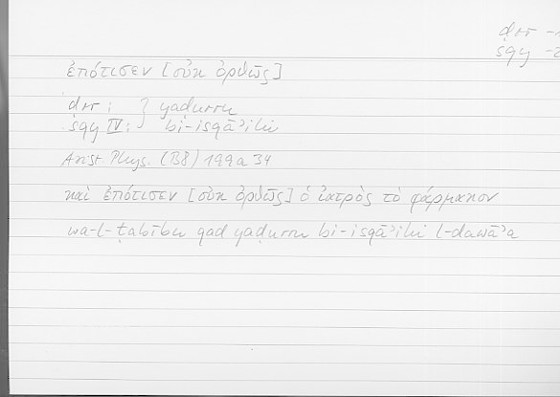 ḍrr -1
sqy -2
ἐπότισεν [οὐκ ὀρθῶς]
ḍrr : } yaḍurru
sqy IV : bi-isqāʾihi
Arist Phys. (B8) 199a 34
καὶ ἐπότισεν [οὐκ ὀρθῶς] ὁ ἰατρὸς τὸ φάρμακον
wa-l-ṭabību qad yaḍurru bi-isqāʾihi l-dawāʾa